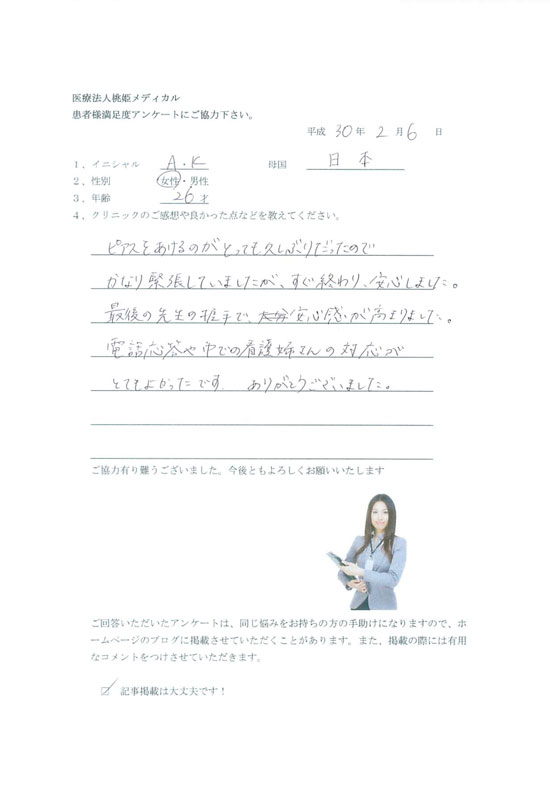 医療法人桃姫メディカル
患者様満足度アンケートにご協力下さい。
平成 30 年 2 月 6 日
1、イニシャル A・K 母国 日本
2、性別 女性・男性
3、年齢 26才
4、クリニックのご感想や良かった点などを教えてください。
ピアスをあけるのがとっても久しぶりだったので
かなり緊張していましたが、すぐ終わり、安心しました。
最後の先生の握手で、安心感が高まりました。
電話応答や中での看護婦さんの対応が
とてもよかったです。 ありがとうございました。
ご協力有り難うございました。今後ともよろしくお願いいたします
ご回答いただいたアンケートは、同じ悩みをお持ちの方の手助けになりますので、ホ
ームページのブログに掲載させていただくことがあります。また、掲載の際には有用
なコメントをつけさせていただきます。
☑ 記事掲載は大丈夫です！